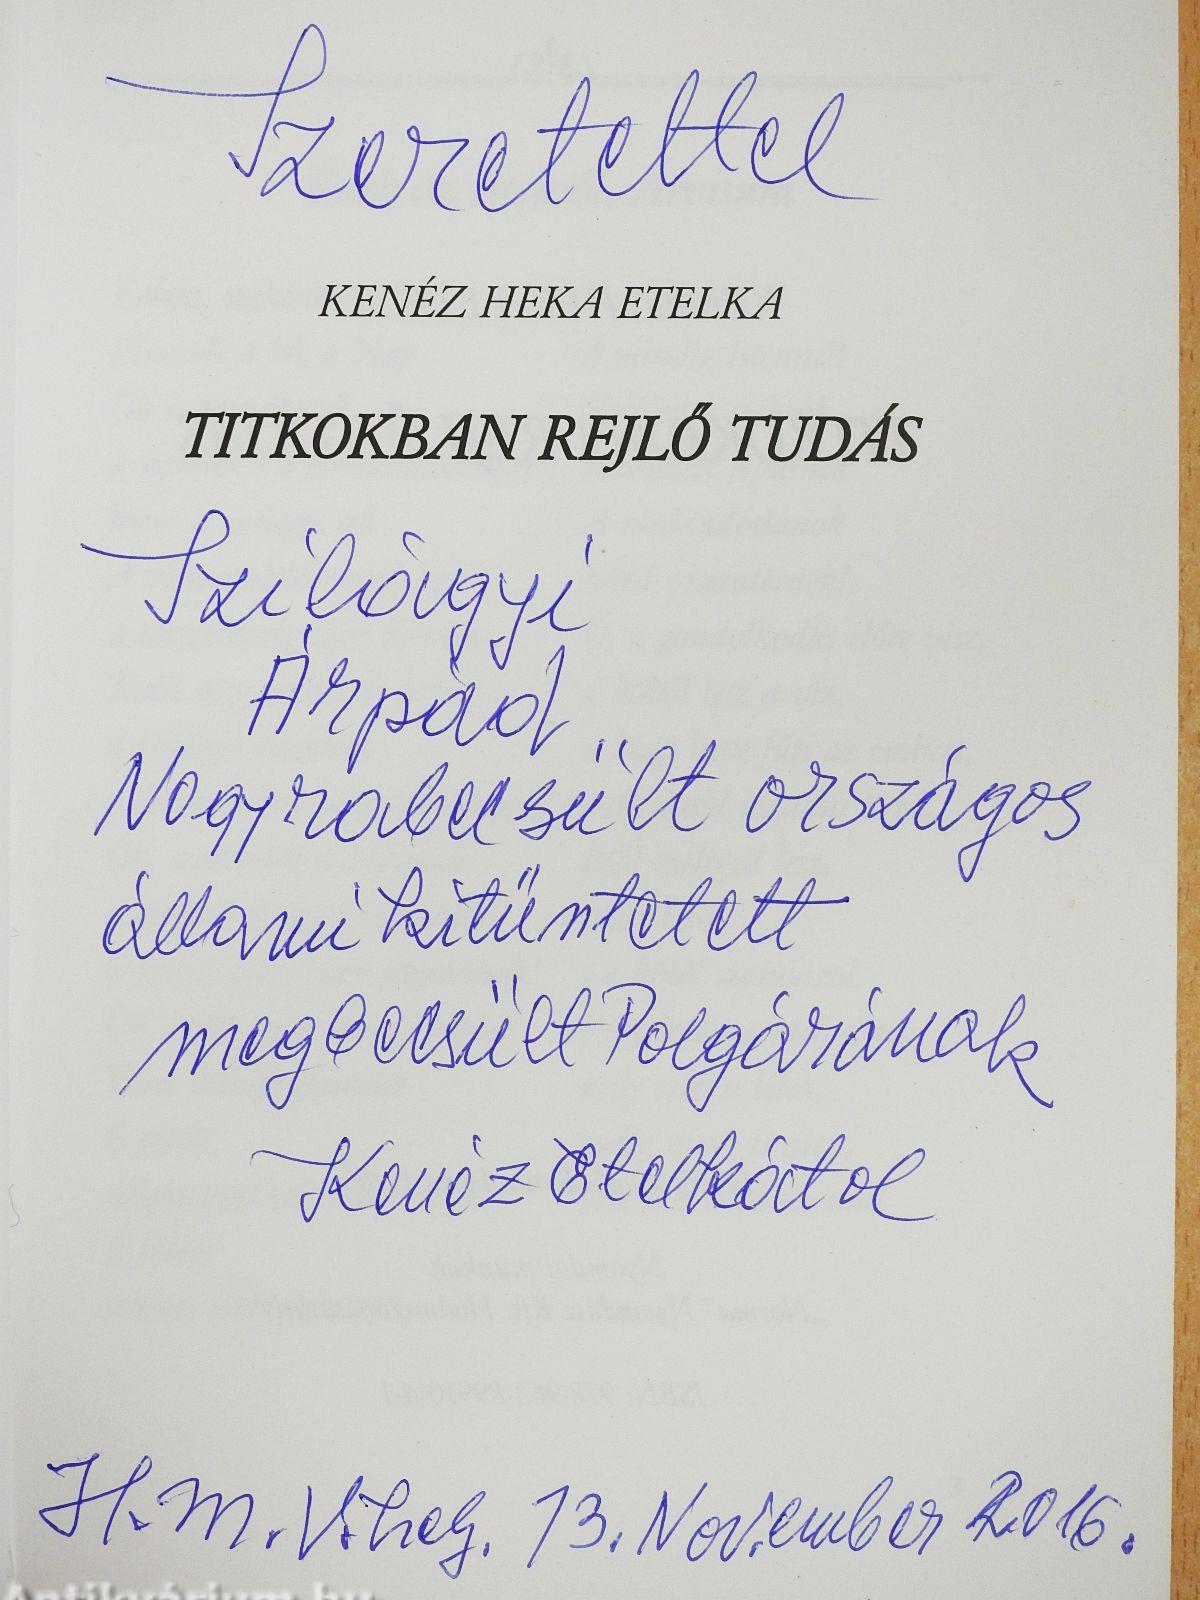 Szeretettel
KENÉZ HEKA ETELKA
TITKOKBAN REJLŐ TUDÁS
Szilágyi
Árpád
Nagyrabecsült országos
állami kitűntetett
megbecsült Polgárának
Kenéz Etelkától
H.M.V.hely. 13. November 2016.
Antikvárium.hu